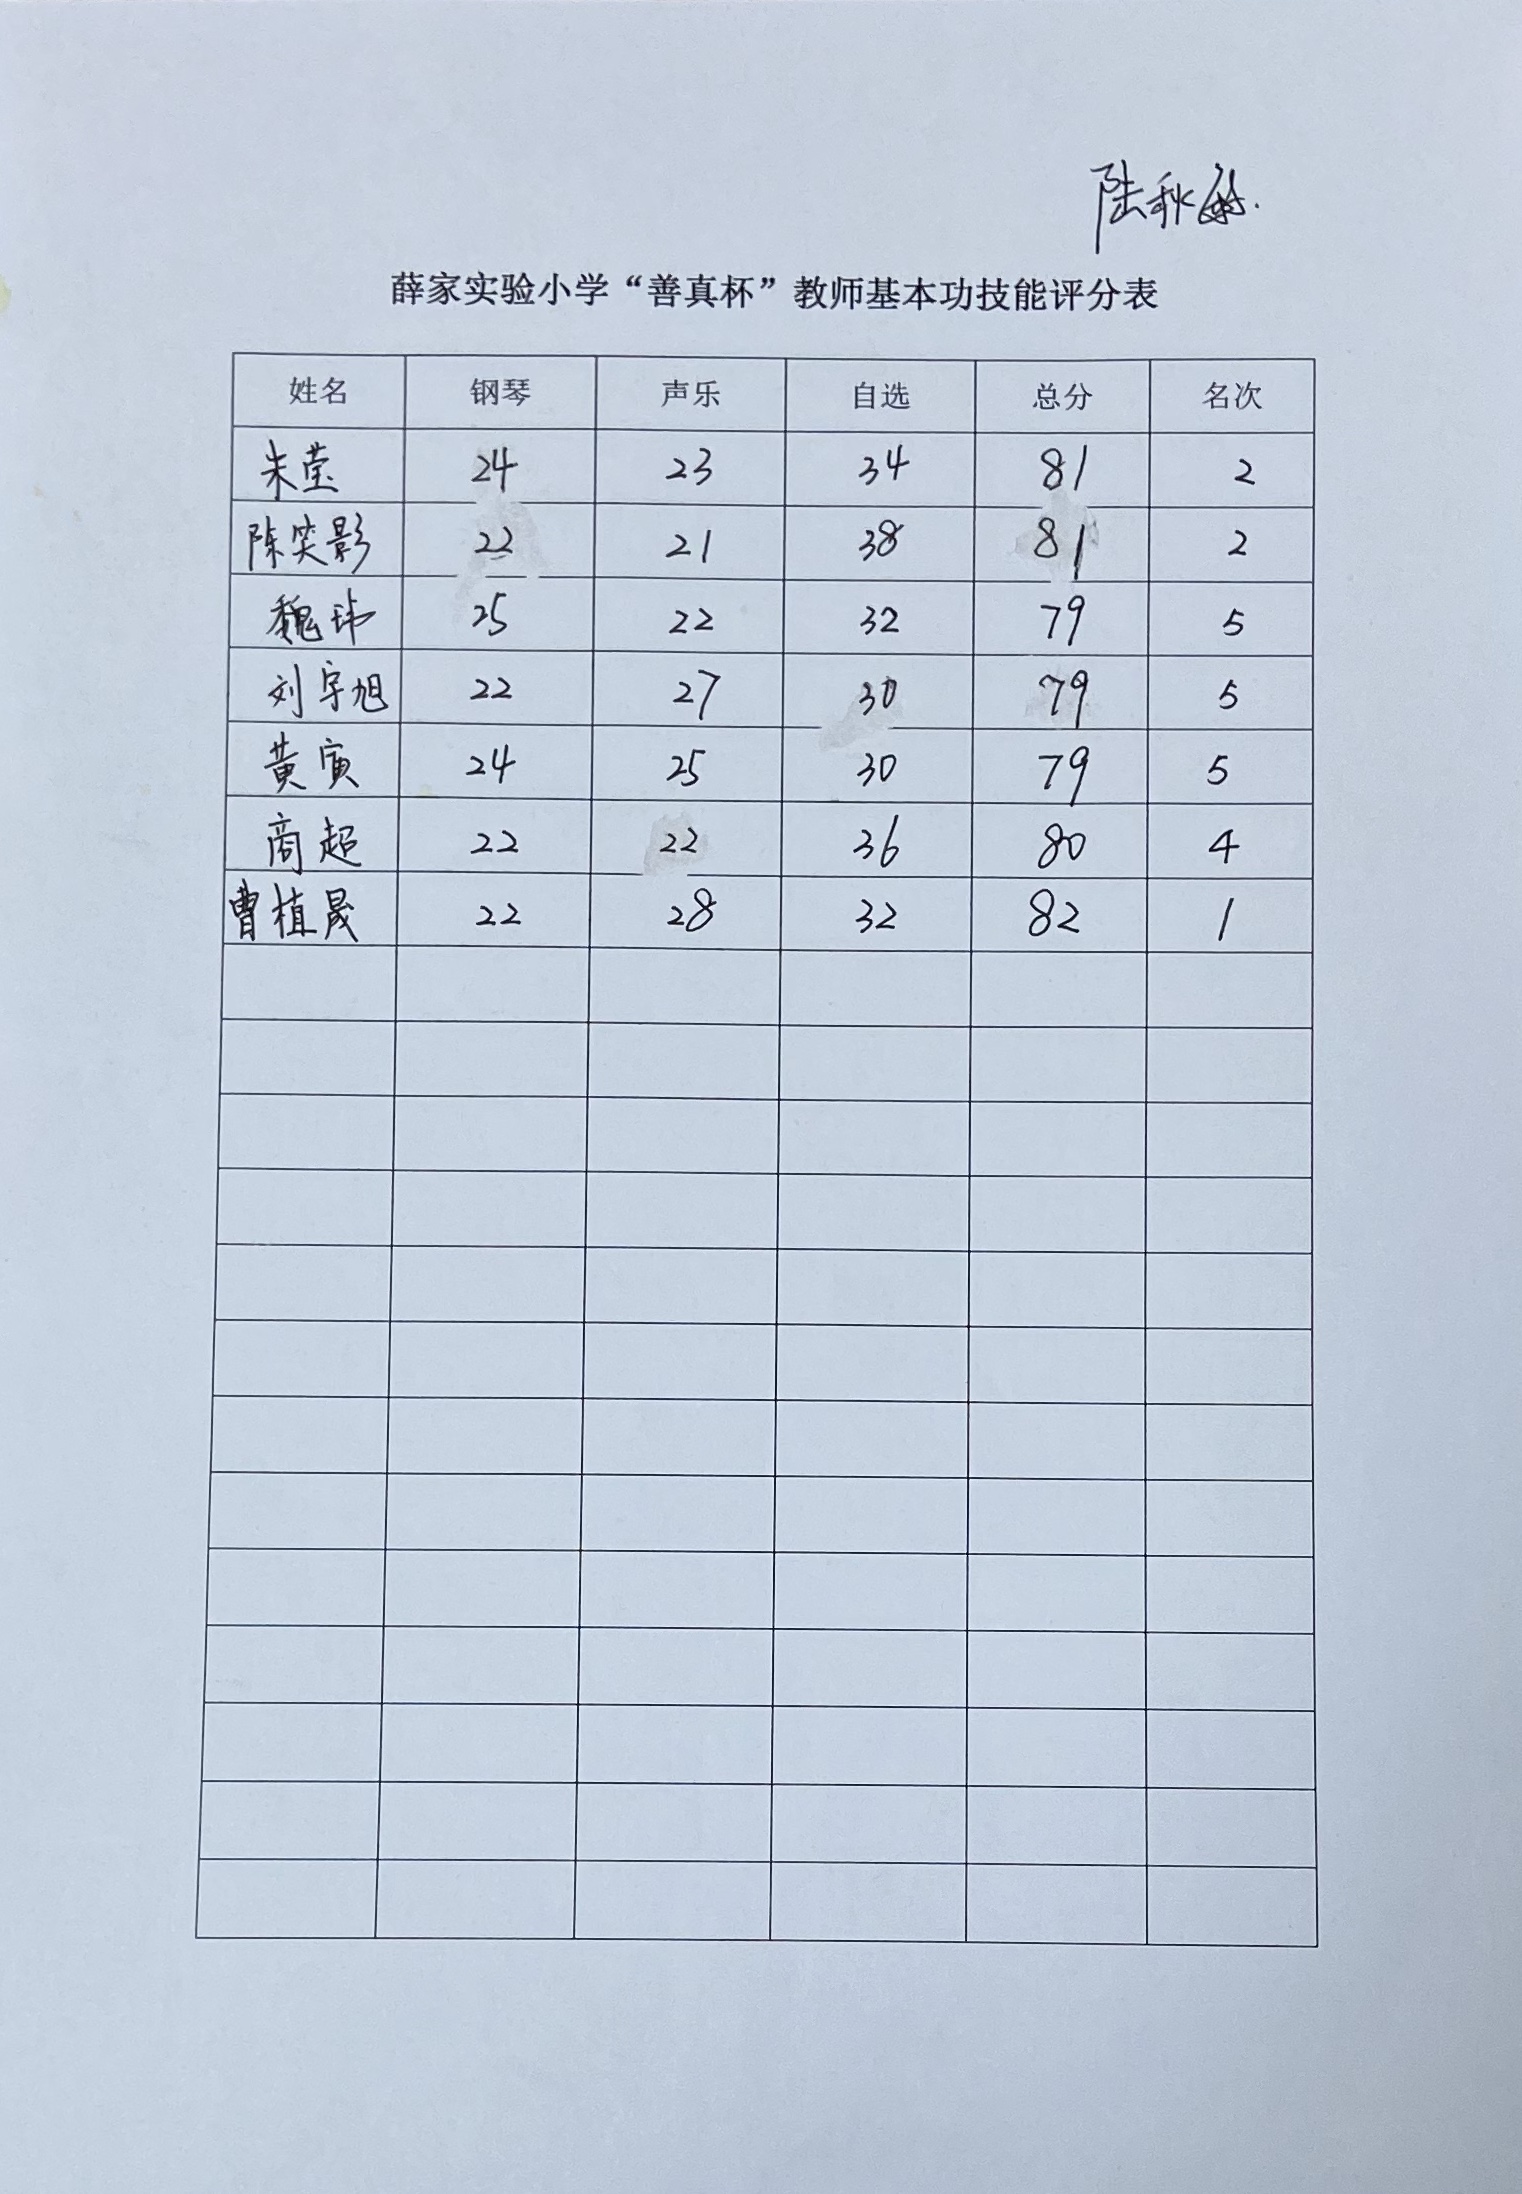 陆秋敏.
薛家实验小学“善真杯”教师基本功技能评分表
姓名 钢琴 声乐 自选 总分 名次
朱莹 24 23 34 81 2
陈笑影 22 21 38 81 2
魏玮 25 22 32 79 5
刘宇旭 22 27 30 79 5
黄寅 24 25 30 79 5
商超 22 22 36 80 4
曹植晟 22 28 32 82 1